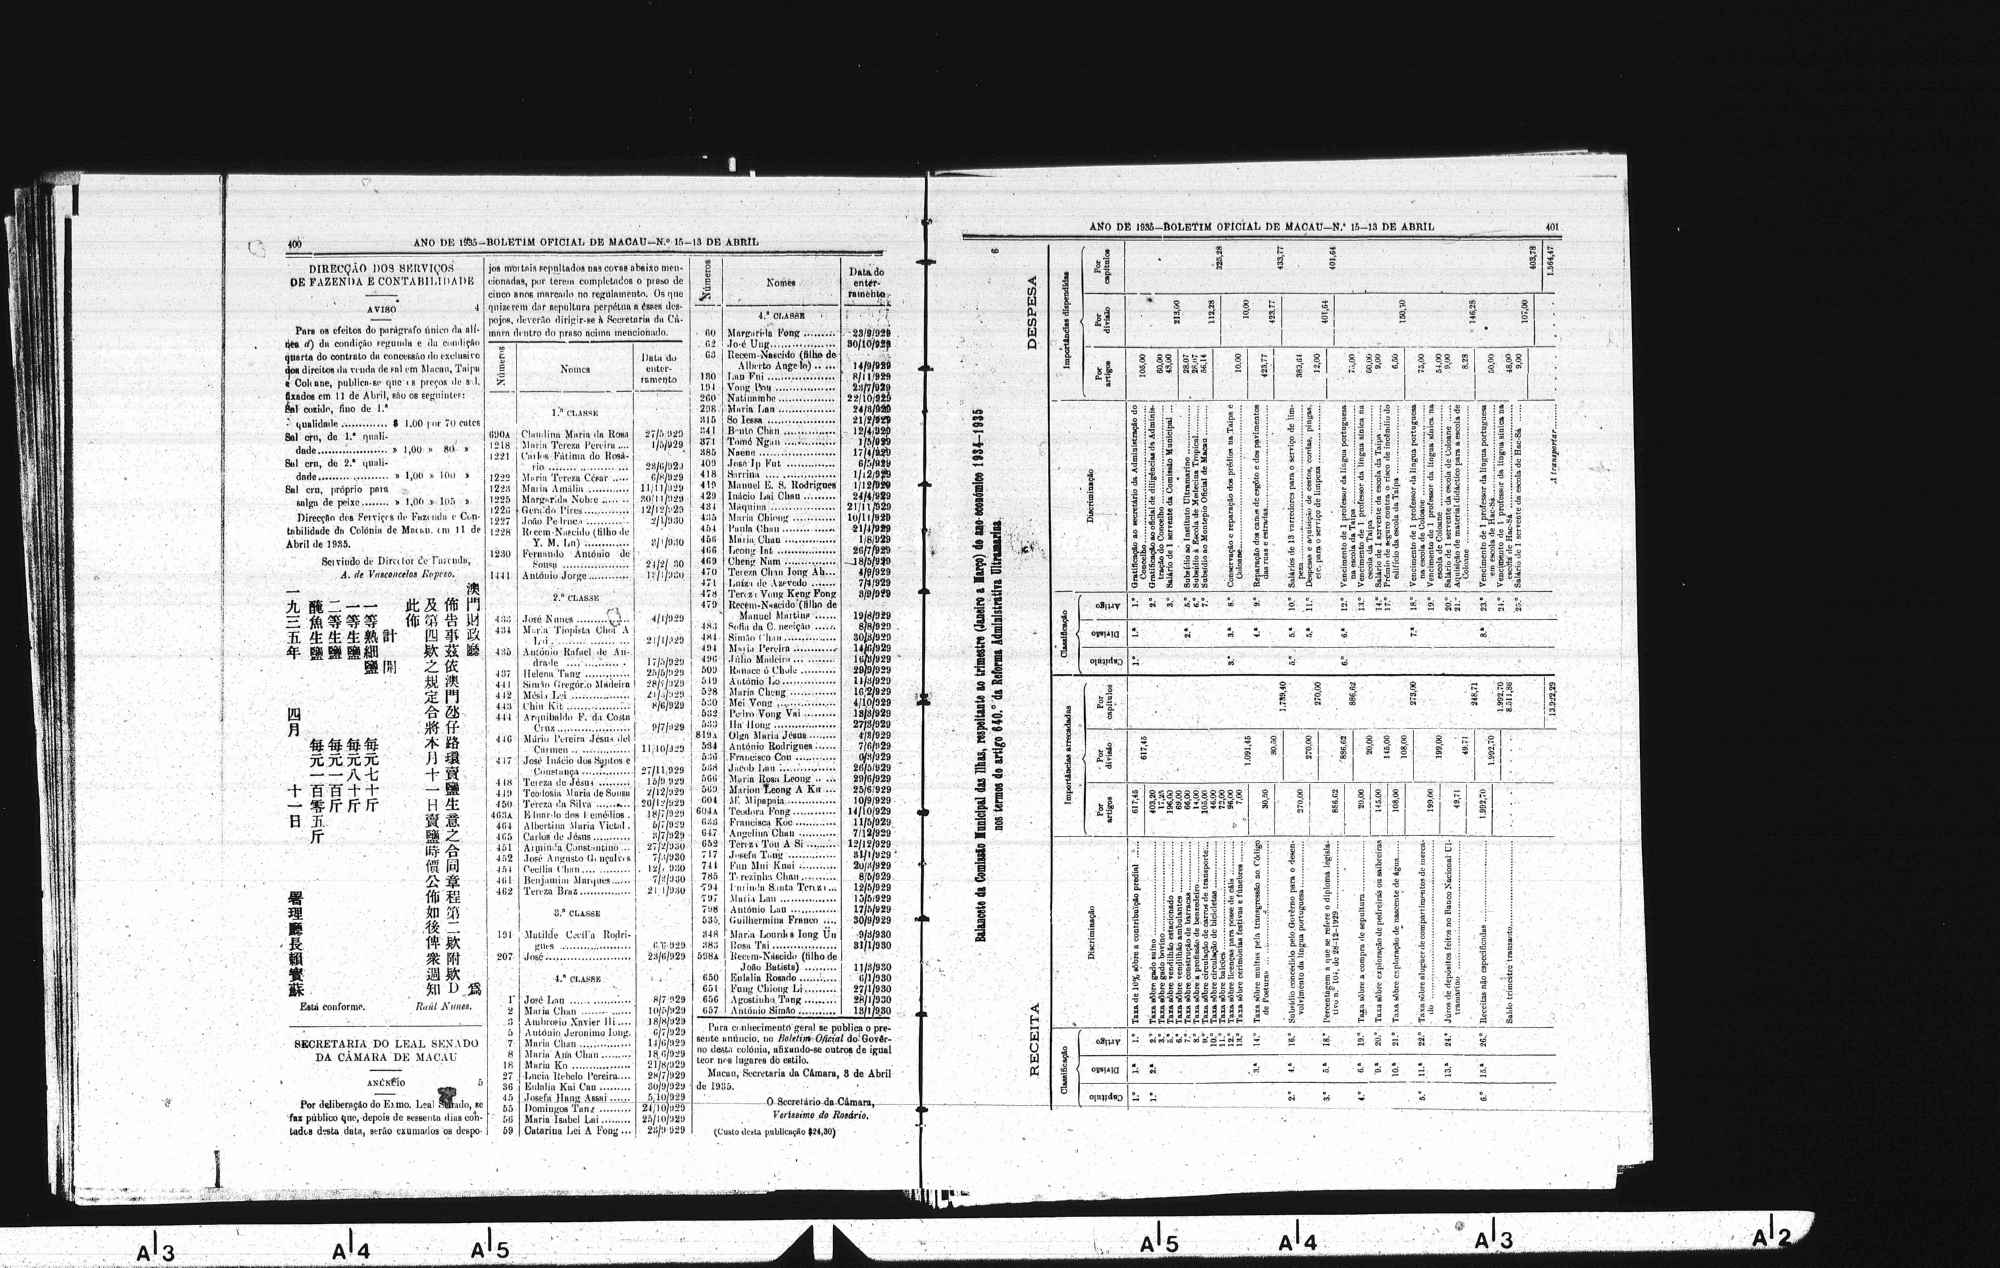 400
ANO DE 1935—BOLETIM OFICIAL DE MACAU—N.º 15—13 DE ABRIL
DIRECÇÃO DOS SERVIÇOS
DE FAZENDA E CONTABILIDADE
AVISO 4
Para os efeitos do parágrafo único da alí-
nea d) da condição segunda e da condição
quarta do contrato da concessão do exclusivo
dos direitos da venda de sal em Macau, Taipa
e Coloane, publica-se que os preços de sal,
fixados em 11 de Abril, são os seguintes:
Sal cozido, fino de 1.ª
qualidade ............. $ 1,00 por 70 cates
Sal cru, de 1.ª quali-
dade................... » 1,00 » 80 »
Sal cru, de 2.ª quali-
dade................... » 1,00 » 100 »
Sal cru, próprio para
salga de peixe........ » 1,00 » 105 »
Direcção dos Serviços de Fazenda e Con-
tabilidade da Colónia de Macau, em 11 de
Abril de 1935.
Servindo de Director de Fazenda,
A. de Vasconcelos Raposo.
澳門財政廳 爲
佈告事茲依澳門氹仔路環賣鹽生意之合同章程第二欵附欵D
及第四欵之規定合將本月十一日賣鹽時價公佈如後俾衆週知
此佈
計開
一等熟細鹽 每元七十斤
一等生鹽 每元八十斤
二等生鹽 每元一百斤
醃魚生鹽 每元一百零五斤
一九三五年 四月 十一日
署理廳長賴寳蘇
Está conforme. Raúl Nunes.
SECRETARIA DO LEAL SENADO
DA CÂMARA DE MACAU
ANÚNCIO 5
Por deliberação do Exmo. Leal Senado, se
faz público que, depois de sessenta dias con-
tados desta data, serão exumados os despo-
jos mortais sepultados nas covas abaixo men-
cionadas, por terem completados o praso de
cinco anos marcado no regulamento. Os que
quizerem dar sepultura perpétua a êsses des-
pojos, deverão dirigir-se à Secretaria da Câ-
mara dentro do praso acima mencionado.
Números Nomes Data do enter- ramento
1.ª CLASSE
690A Claudina Maria da Rosa 27/5/929
1218 Maria Tereza Pereira .... 1/5/929
1221 Carlos Fátima do Rosá-
rio 23/6/929
1222 Maria Tereza César ..... 6/8/929
1223 Maria Amália ............ 11/11/929
1225 Margarida Nobre 30/11/929
1226 Geraldo Pires............ 12/12/929
1227 João Pedruco 2/1/930
1228 Recem-Nascido (filho de
Y. M. Lu) ............ 3/1/930
1230 Fernando António de
Sousa
1441 António Jorge
2.ª CLASSE
433 José Nunes 4/1/929
434 Maria Tiopista Choi A
Loi 21/1/929
435 António Rafael de An-
drade 17/5/929
437 Helena Tang 25/5/929
441 Simão Gregório Madeira
442 Mésia Lei
443 Chin Kit 8/6/929
444 Arquibaldo F. da Costa
Cruz 9/7/929
446 Mário Pereira Jésus del
Carmen 11/10/929
447 José Inácio dos Santos e
Constança 27/11/929
448 Tereza de Jésus 15/9/929
449 Teodósia Maria de Sousa 2/12/929
450 Tereza da Silva 20/12/929
463A Eduardo dos Remédios . 18/7/929
464 Albertina Maria Victal . 5/7/929
465 Carlos de Jésus 3/7/929
451 Arminda Constantino ... 27/2/930
452 José Augusto Gonçalves
454 Cecília Chan
461 Benjamim Marques
462 Tereza Braz
3.ª CLASSE
191 Matilde Cecília Rodri-
gues
207 José 23/6/929
4.ª CLASSE
1 José Lau 8/7/929
2 Maria Chan 10/5/929
3 Ambrosio Xavier Hi.... 18/8/929
5 António Jeronimo Iong. 6/7/929
7 Maria Chan 14/6/929
8 Maria Ana Chan 18/6/929
18 Maria Ko 21/8/929
27 Lucia Rebelo Pereira.... 28/7/929
36 Eulalia Kai Cau 30/9/929
45 Josefa Hang Assai 5/10/929
55 Domingos Tang 24/10/929
56 Maria Isabel Lai 25/10/929
59 Catarina Lei A Fong ... 23/9/929
Números Nomes Data do enter- ramento
4.ª CLASSE
60 Margarida Fong ......... 23/9/929
62 José Ung................. 30/10/929
63 Recem-Nascido (filho de
Alberto Angelo) ...... 14/9/929
180 Lau Fui 8/11/929
191 Vong Pou 23/7/929
260 Natimambe 22/10/929
298 Maria Lau 24/8/929
315 So Iessa 21/2/929
341 Bento Chan 12/4/929
371 Tomé Ngau 1/5/929
385 Naene 17/4/929
409 José Ip Fut 6/5/929
418 Sarrina 1/12/929
419 Manuel E. S. Rodrigues 1/12/929
429 Inácio Lai Chau 24/4/929
434 Máquina 21/11/929
435 Maria Chiong 10/11/929
454 Paula Chau 21/4/929
456 Maria Chan 1/8/929
466 Leong Iat 26/7/929
469 Cheng Nam 18/5/929
470 Tereza Chan Iong Ah... 4/9/929
471 Luíza de Azevedo 7/4/929
478 Tereza Vong Keng Fong 3/9/929
479 Recem-Nascido (filho de
Manuel Martins 19/8/929
483 Sofia da Conceição 8/8/929
484 Simão Chan 30/3/929
494 Maria Pereira 14/6/929
496 Júlio Madeira 16/9/929
509 29/9/929
519 António Lo 11/3/929
528 Maria Cheng 16/2/929
530 Mei Vong 4/10/929
532 Pedro Vong Vai 13/3/929
533 Ha Hong 27/3/929
819A Olga Maria Jésus 4/3/929
534 António Rodrigues 7/6/929
536 Francisco Cou
538 Jacob Lau 26/5/929
566 Maria Rosa Leong 29/6/929
569 Marion Leong A Ku 25/6/929
604 M. Mipapaia 10/9/929
604A Teodora Fong 14/10/929
635 Francisca Koc 11/5/929
647 Angelina Chan 7/12/929
652 Tereza Tou A Si 12/12/929
717 Josefa Tang 31/1/929
744 Fun Mui Kuai 20/3/929
785 Terezinha Chan 8/5/929
794 Luzinda Santa Tereza 12/5/929
797 Maria Lau 15/5/929
798 António Lau 17/5/929
535 Guilhermina Franco 30/9/929
348 Maria Lourdes Iong Un 9/3/930
383 Rosa Tai 31/1/930
598A Recem-Nascido (filho de
João Batista) 11/3/930
650 Eulalia Rosado 6/1/930
651 Fung Chiong Li 27/1/930
656 Agostinho Tang 28/1/930
657 António Simão 13/1/930
Para conhecimento geral se publica o pre-
sente anúncio, no Boletim Oficial do Govêr-
no desta colónia, afixando-se outros de igual
teor nos lugares do estilo.
Macau, Secretaria da Câmara, 3 de Abril
de 1935.
O Secretário da Câmara,
Veríssimo do Rosário.
(Custo desta publicação $24,30)
ANO DE 1935—BOLETIM OFICIAL DE MACAU—N.º 15—13 DE ABRIL
401
6
Balancete da Comissão Municipal das Ilhas, respeitante ao trimestre (Janeiro a Março) do ano económico 1934–1935
nos termos do artigo 640.º da Reforma Administrativa Ultramarina.
RECEITA
Classificação Discriminação Importâncias arrecadadas
Capítulo Divisão Artigo Por artigos Por divisão Por capítulos
1.º 1.ª 1.º Taxa de 10% sôbre a contribuição predial ...... 617,45 617,45
1.º 2.ª 2.º Taxa sôbre gado suíno 403,20
3.º Taxa sôbre gado bovino 17,25
5.º Taxa sôbre vendilhão estacionado 196,00
6.º Taxa sôbre vendilhão ambulantes 69,00
7.º Taxa sôbre construção de barracas 66,00
8.º Taxa sôbre a profissão de benzedeiro 14,00
9.º Taxa sôbre circulação de carros de transporte 105,00
10.º Taxa sôbre circulação de bicicletas 46,00
11.º Taxa sôbre balcões 72,00
12.º Taxa sôbre licenças para posse de cães 96,00
13.º Taxa sôbre cerimónias festivas e fúnebres 7,00 1.091,45
3.ª 14.º Taxa sôbre multas pela transgressão ao Código
de Posturas 30,50 30,50 1.739,40
2.º 4.ª 16.º Subsídio concedido pelo Govêrno para o desen-
volvimento da língua portuguesa 270,00 270,00 270,00
3.º 5.ª 18.º Percentagem a que se refere o diploma legisla-
tivo n.º 104, de 28-12-1929 886,62 886,62 886,62
4.º 6.ª 19.º Taxa sôbre a compra de sepultura 20,00 20,00
9.ª 20.º Taxa sôbre exploração de pedreiras ou saibreiras 145,00 145,00
10.ª 21.º Taxa sôbre exploração de nascente de água 108,00 108,00 273,00
5.º 11.ª 22.º Taxa sôbre aluguer de compartimentos de merca-
do 199,00 199,00
13.ª 24.º Juros de depósitos feitos no Banco Nacional Ul-
tramarino 49,71 49,71 248,71
6.º 15.ª 26.º Receitas não especificadas 1.992,70 1.992,70 1.992,70
Saldo trimestre transacto 8.511,86
13.922,29
DESPESA
Classificação Discriminação Importâncias dispendidas
Capítulo Divisão Artigo Por artigos Por divisão Por capítulos
1.º 1.ª 1.º Gratificação ao secretário da Administração do
Concelho 105,00
2.º Gratificação ao oficial de diligências da Adminis-
tração do Concelho 60,00
3.º Salário de 1 servente da Comissão Municipal 48,00 213,00
2.ª 5.º Subsídio ao Instituto Ultramarino 28,07
6.º Subsídio à Escola de Medecina Tropical 28,07
7.º Subsídio ao Montepio Oficial de Macau 56,14 112,28 325,28
3.º 3.ª 8.º Conservação e reparação dos prédios na Taipa e
Coloane 10,00 10,00
4.ª 9.º Reparação dos canos de esgôto e dos pavimentos
das ruas e estradas 423,77 423,77 433,77
5.º 5.ª 10.º Salários de 13 varredores para o serviço de lim-
peza 389,64
5.ª 11.º Despesas e aquisição de cestos, cordas, pingas,
etc. para o serviço de limpeza 12,00 401,64 401,64
6.º 6.ª 12.º Vencimento de 1 professor da língua portuguesa
na escola da Taipa 75,00
13.º Vencimento de 1 professor da língua sínica na
escola da Taipa 60,00
14.º Salário de 1 servente da escola da Taipa 9,00
17.º Prémio de seguro contra o risco de incêndio do
edifício da escola da Taipa 6,50 150,50
7.ª 18.º Vencimento de 1 professor da língua portuguesa
na escola de Coloane 75,00
19.º Vencimento de 1 professor da língua sínica na
escola de Coloane 54,00
20.º Salário de 1 servente da escola de Coloane 9,00
21.º Aquisição de material didáctico para a escola de
Coloane 8,28 146,28
8.ª 23.º Vencimento de 1 professor da língua portuguesa
em escola de Hac-Sá 50,00
24.º Vencimento de 1 professor da língua sínica na
escola de Hac-Sá 48,00
25.º Salário de 1 servente da escola de Hac-Sá 9,00 107,00 403,78
A transportar 1.564,47
A 3
A 4
A 5
A 5
A 4
A 3
A 2